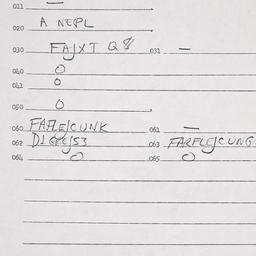 011 —
020 A NEPL
030 FAJXT Q8 031 —
040 O
041 O
050 O
060 FAFLEJCUNK 061 —
062 063 FARFLEJCUNG
064 O 065 O